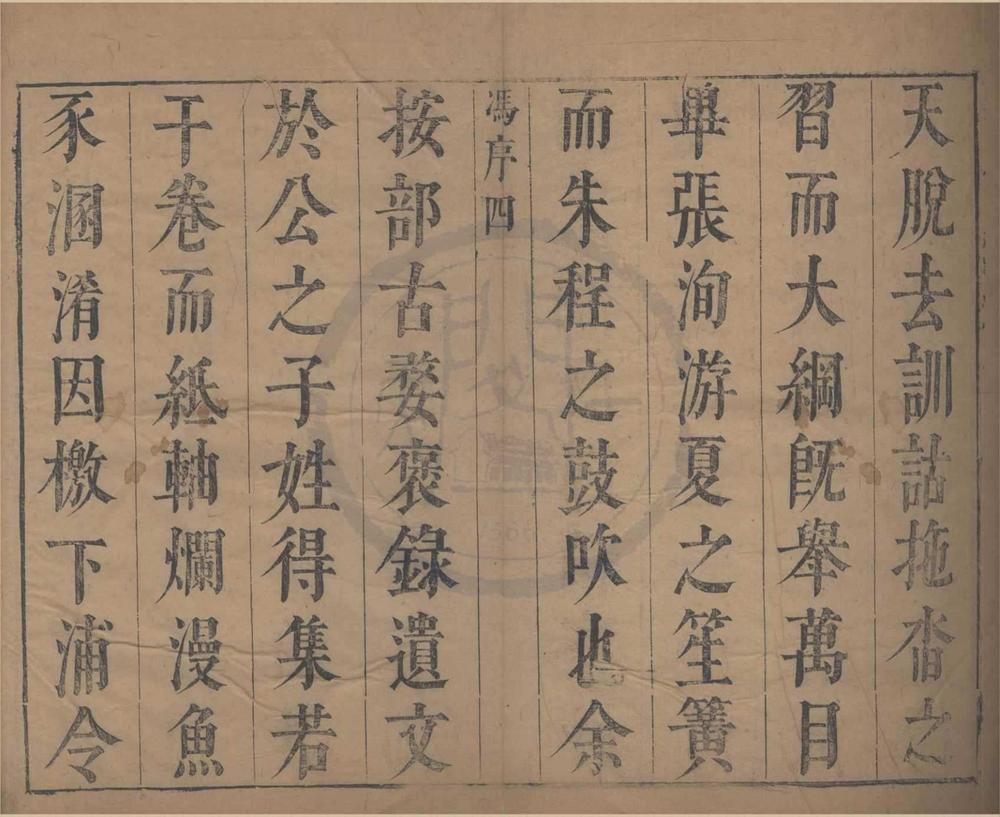 天脫去訓詁拖沓之
習而大綱旣舉萬目
畢張洵游夏之笙簧
而朱程之鼓吹也余
馮序四
按部古婺褒錄遺文
於公之子姓得集若
干卷而紙軸爛漫魚
豕溷淆因檄下浦令